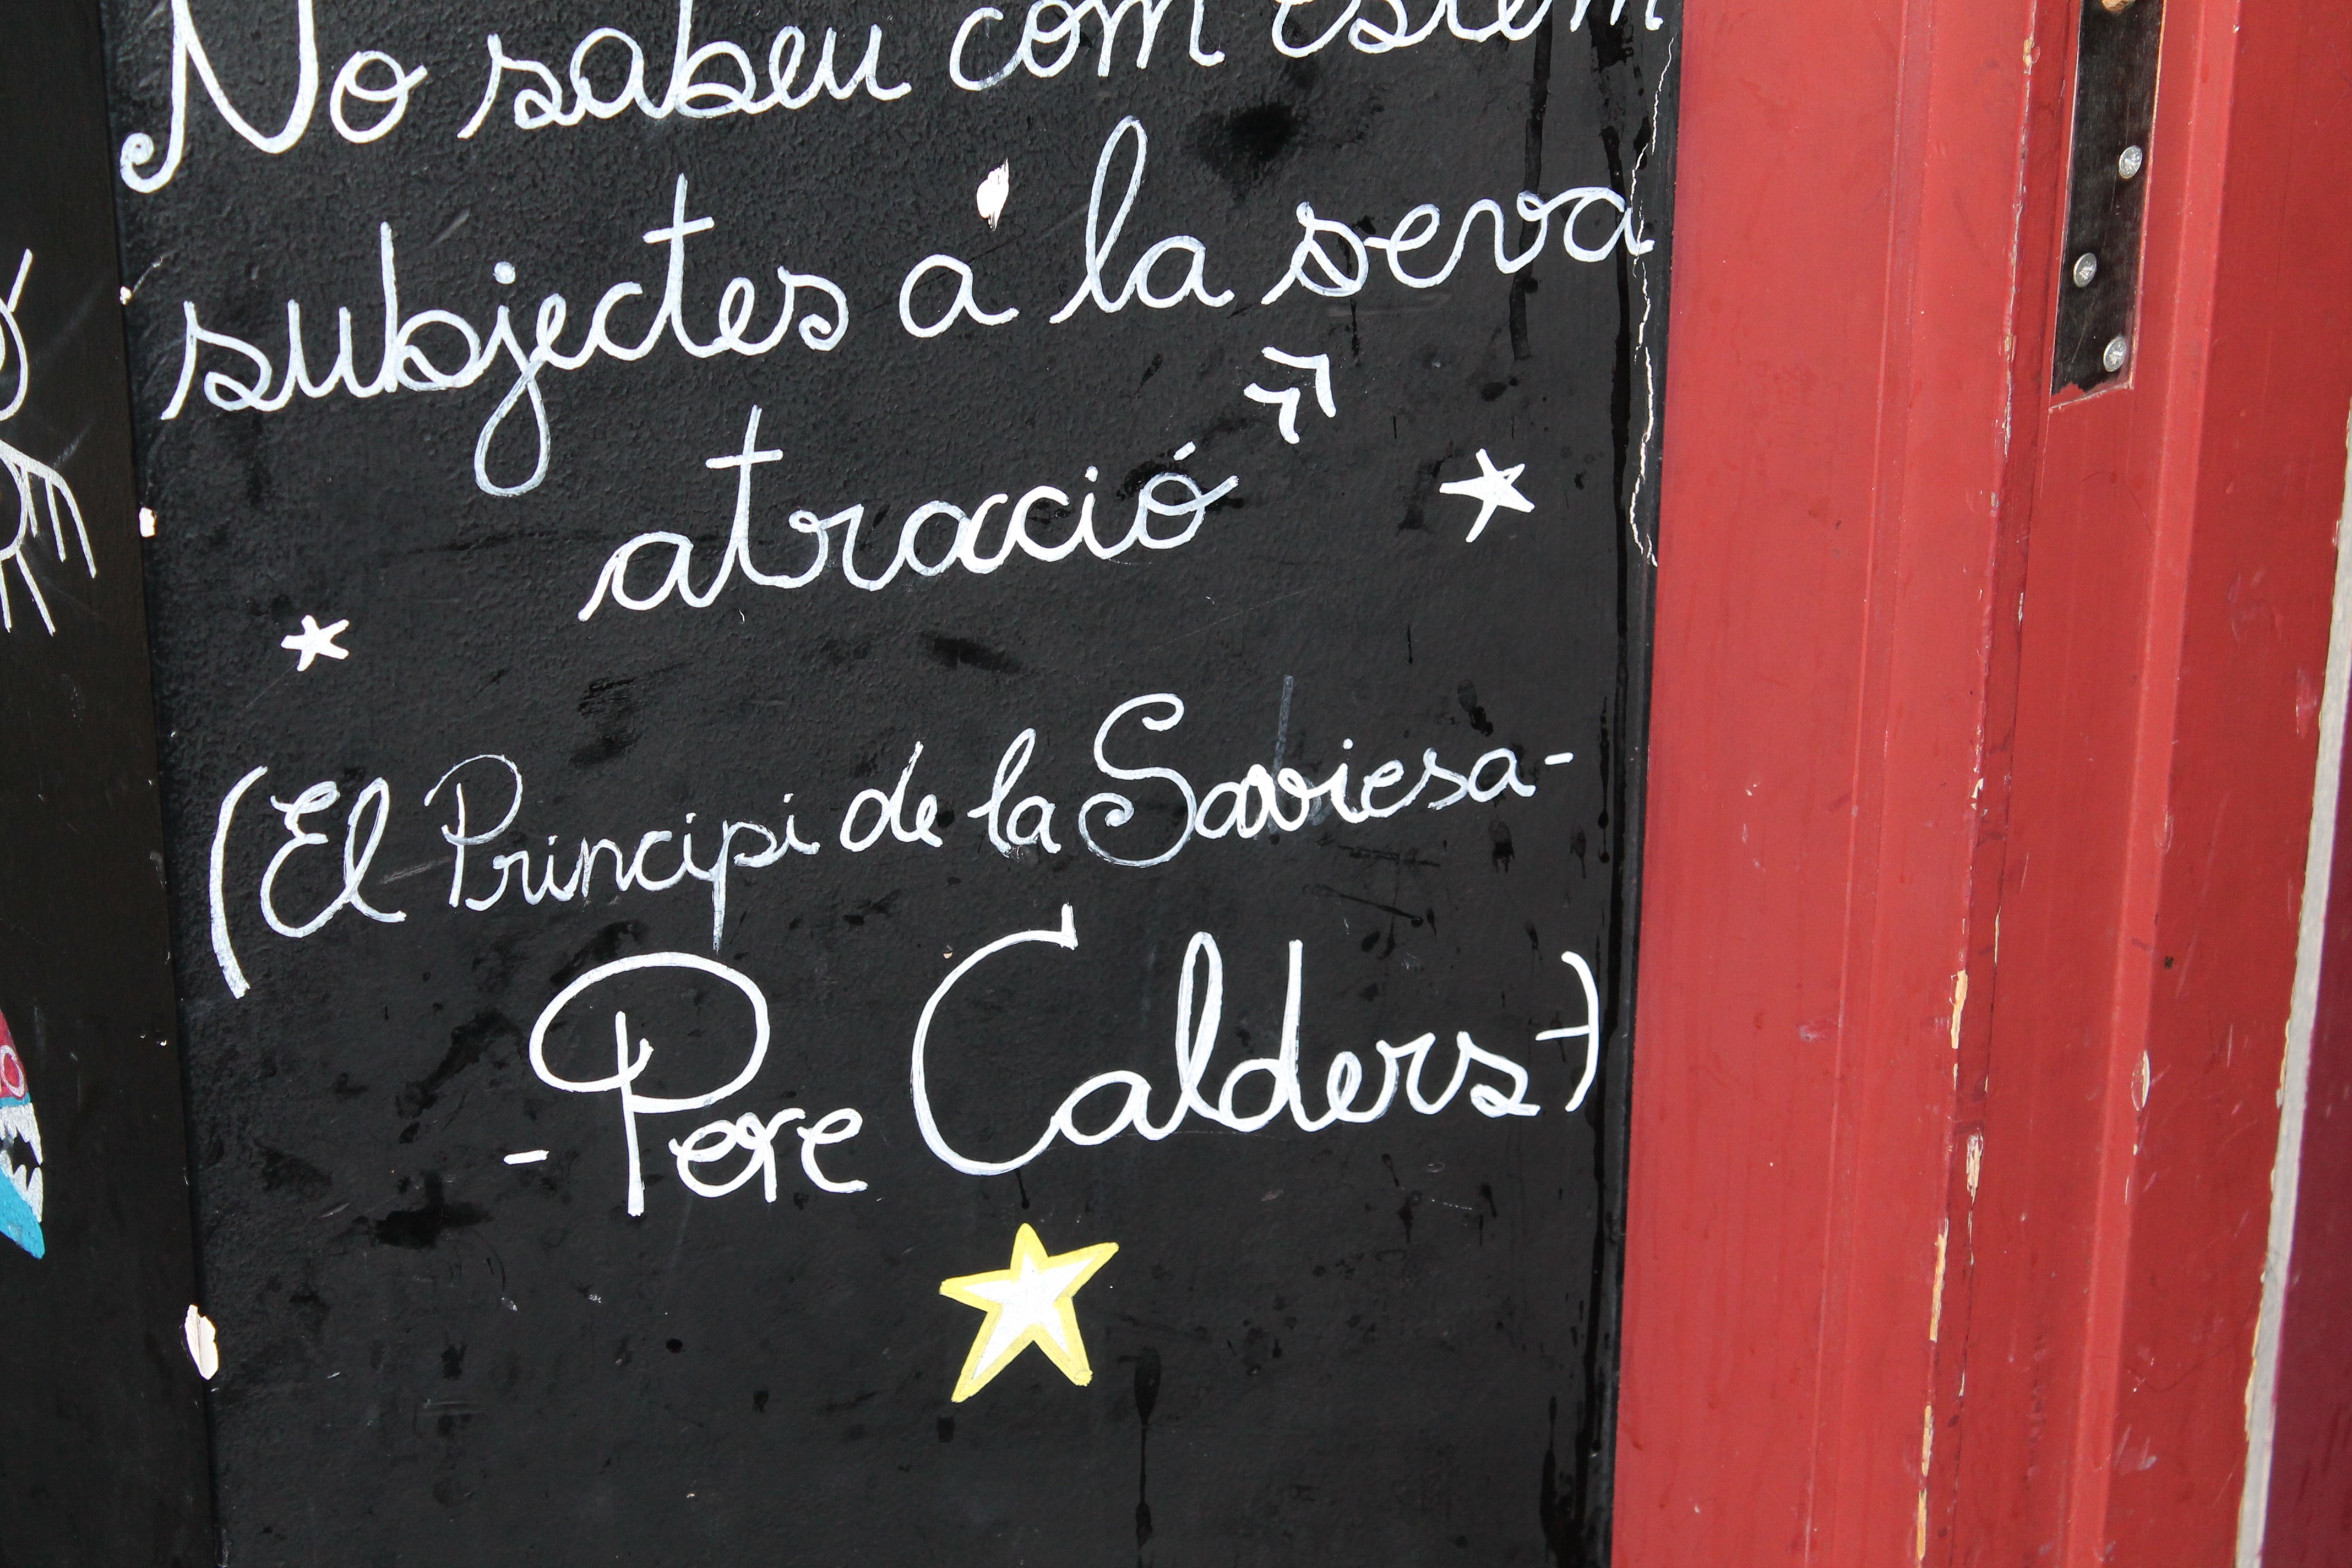 No sabeu com estem
subjectes a la seva
atracció"
(El Principi de la Saviesa-
- Pere Calders-)